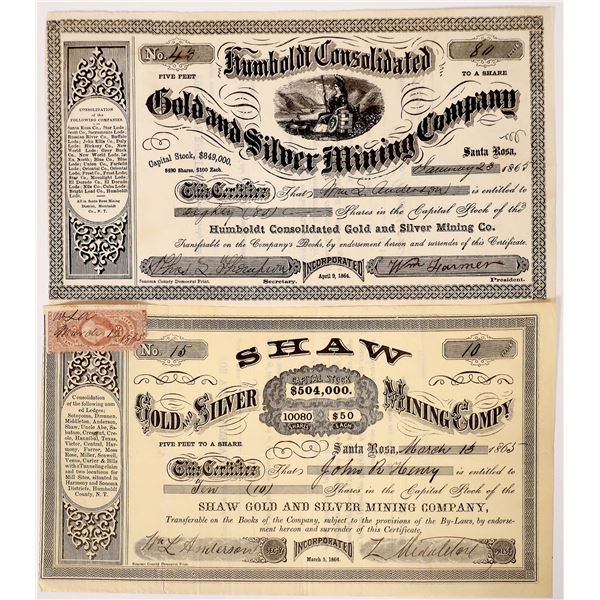 No. 43
80 Shares
FIVE FEET
TO A SHARE
Humboldt Consolidated
Gold and Silver Mining Company
CONSOLIDATION
of the
FOLLOWING COMPANIES
Santa Rosa Co., Star Lode;
South Co., Sacramento Lode;
Russian River Co., Buffalo
Lode; John Ellis Co., Daly
Lode; Hickory Co., New
World Lode; Grey Back
Co., New World Lode,
North; Blue Co., Blue
Lode; Union Co., Fairfield
Lode; Oriental Co., Oriental
Lode; Frost Co., Frost Lode;
Star Co., Moonlight Lode;
El Dorado Co., El Dorado
Lode; Kills Co., Cuba Lode;
Bright Lead Co., Humboldt
Lode.
All in Santa Rosa Mining
District, Humboldt
Co., N. T.
Capital Stock, $849,000.
8490 Shares, $100 Each.
Santa Rosa,
January 23 1865
This Certifies That Wm L Anderson is entitled to
Eighty (80) Shares in the Capital Stock of the
Humboldt Consolidated Gold and Silver Mining Co.
Transferable on the Company's Books, by endorsement hereon and surrender of this Certificate.
INCORPORATED
April 9, 1864.
Wm Farmer
Sonoma County Democrat Print.
Secretary.
President.
No. 15
10 Shares
SHAW
GOLD AND SILVER MINING COMPY
CAPITAL STOCK
$504,000.
10080 SHARES $50 EACH
Consolidation
of the following nam
ed Ledges;
Sotoyoma, Drennen,
Middleton, Anderson,
Shaw, Uncle Abe, Sa-
balum, Crescent, Creo-
le, Hannibal, Texas,
Victor, Central, Har-
mony, Farree, Moss
Rose, Miller, Sorwell,
Venus, Carter & Bills
with a Tunneling claim
and two locations for
Mill Sites, situated in
Harmony and Sonoma
Districts, Humboldt
County, N. T.
FIVE FEET TO A SHARE
Santa Rosa, March 13 1865
This Certifies That John R Henry is entitled to
Ten (10) Shares in the Capital Stock of the
SHAW GOLD AND SILVER MINING COMPANY,
Transferable on the Books of the Company, subject to the provisions of the By-Laws, by endorse-
ment hereon and surrender of this Certificate.
Wm L Anderson SEC'Y
INCORPORATED
March 5, 1864.
L Medaleton PRES'T
Sonoma County Democrat Print.